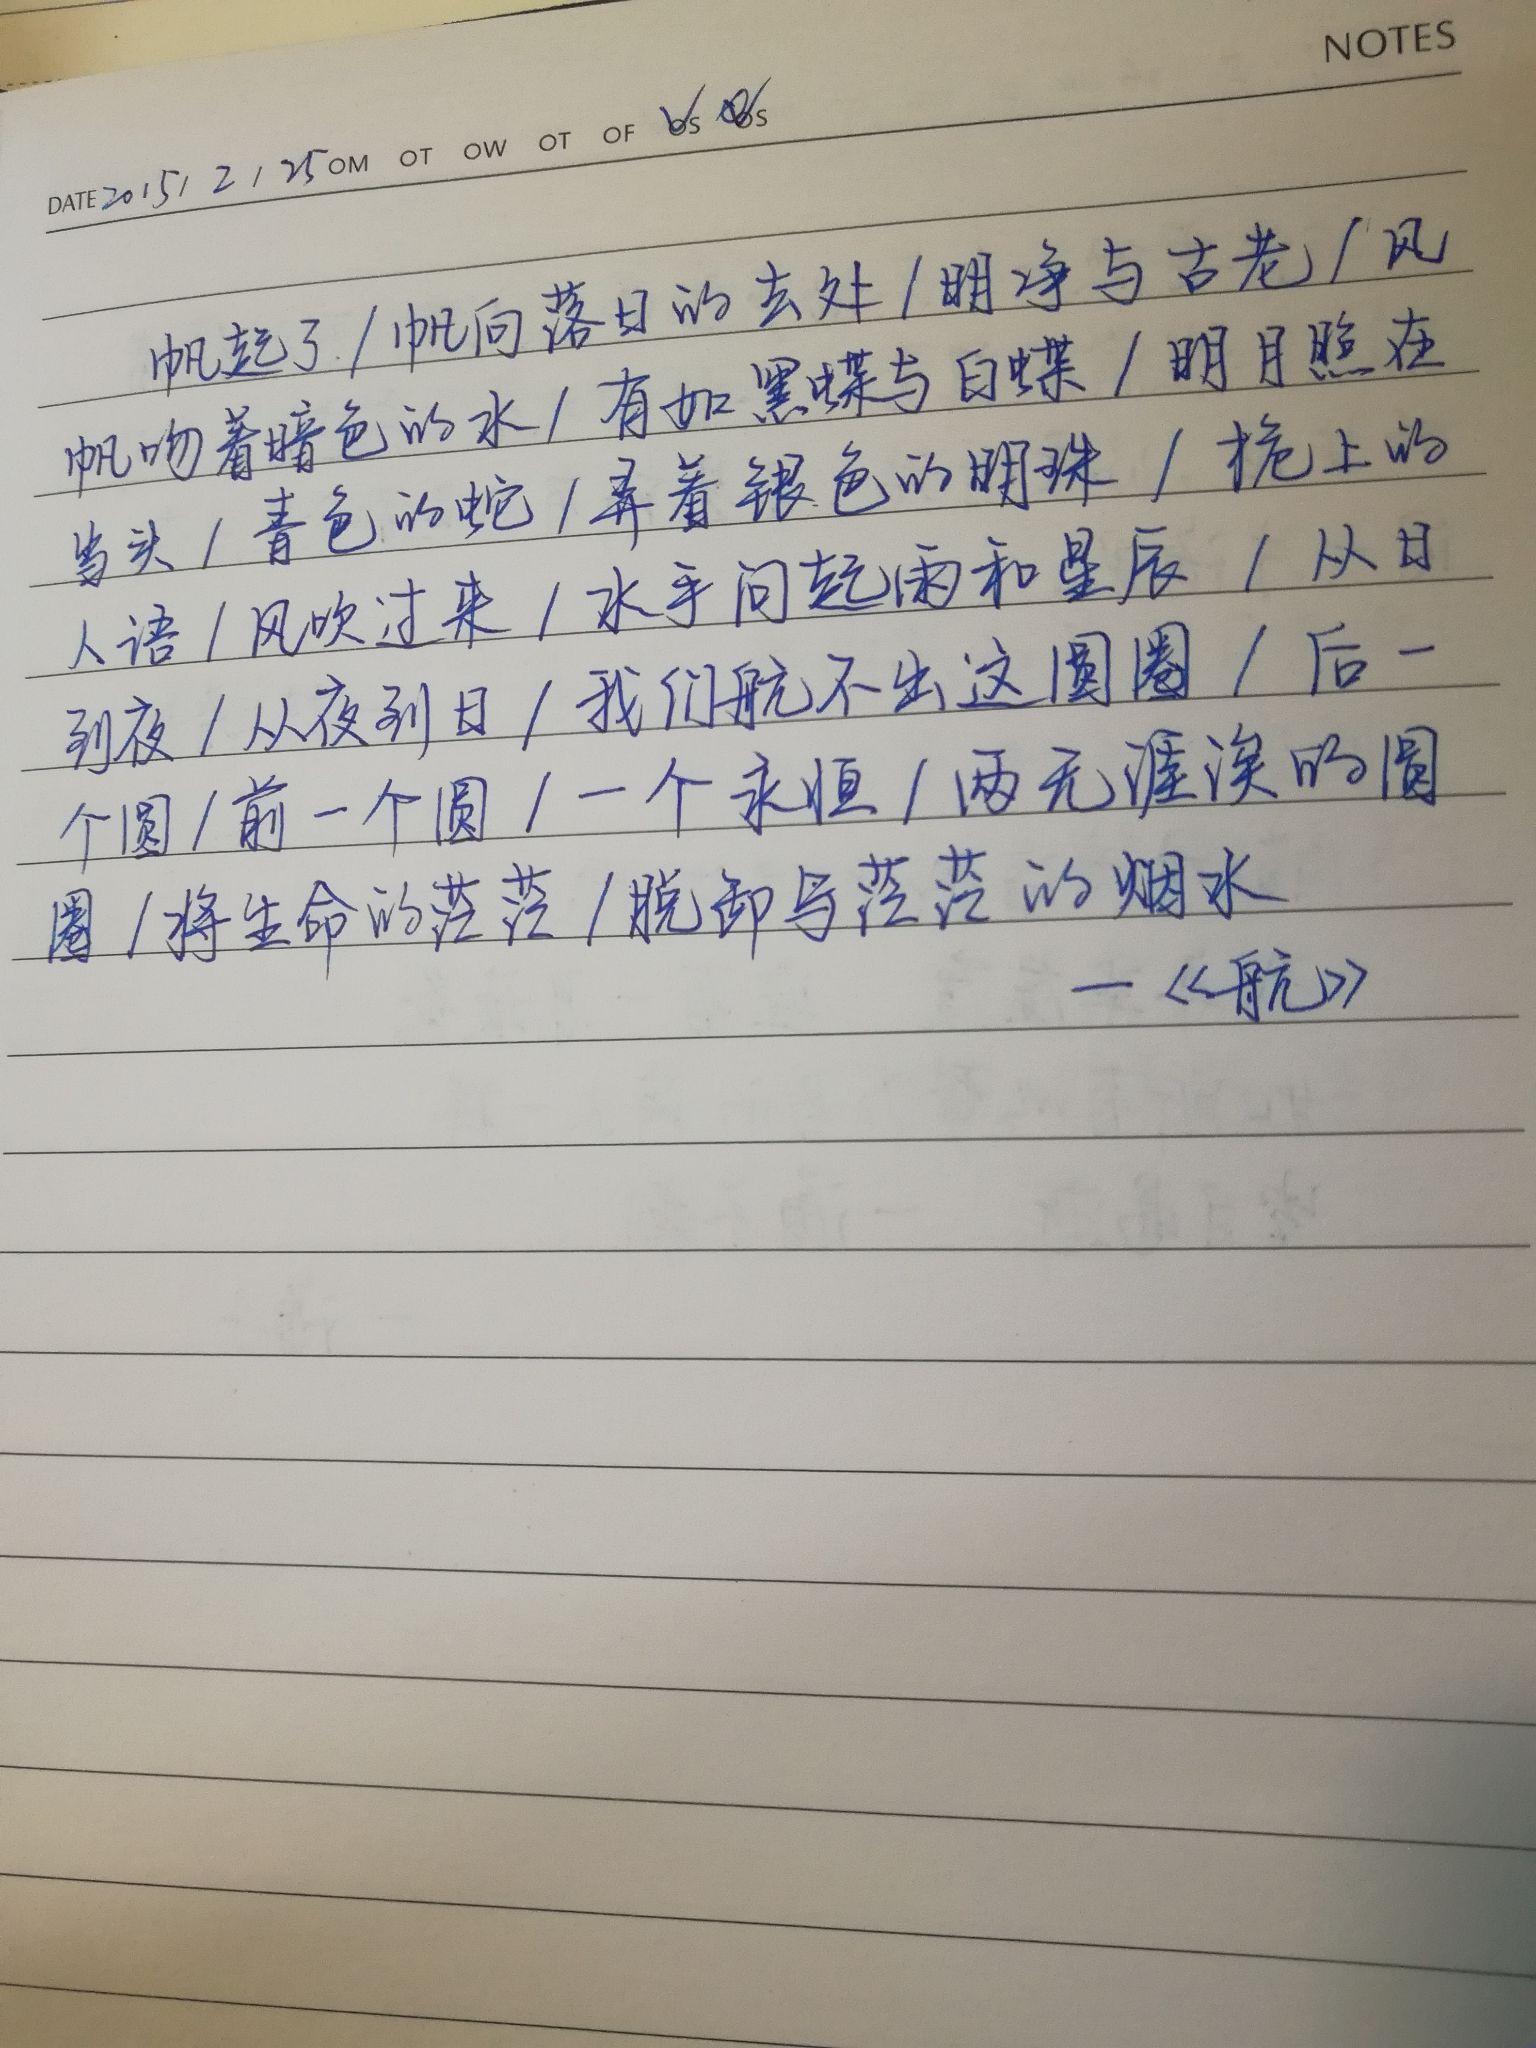 NOTES
DATE 2015 / 2 / 25 OM OT OW OT OF OS OS
帆起了/帆向落日的去处/明净与古老/风
帆吻着暗色的水/有如黑蝶与白蝶/明月照在
当头/青色的蛇/弄着银色的明珠/桅上的
人语/风吹过来/水手问起雨和星辰/从日
到夜/从夜到日/我们航不出这圆圈/后一
个圆/前一个圆/一个永恒/而无涯涘的圆
圈/将生命的茫茫/脱卸与茫茫的烟水
—《航》